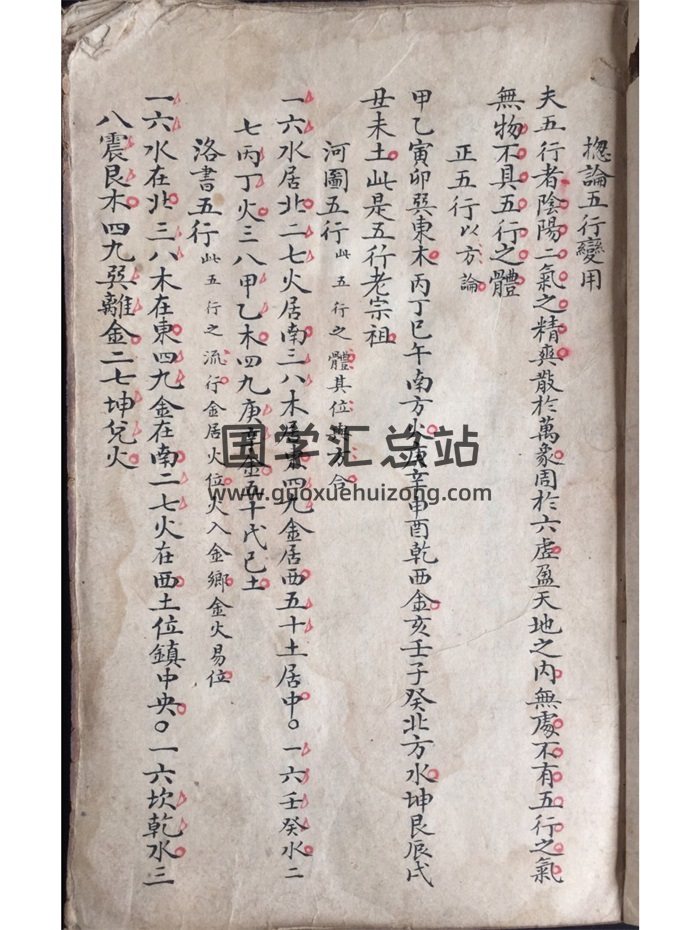 揔論五行變用
夫五行者陰陽二氣之精爽散於萬象周於六虛盈天地之内無處不有五行之氣
無物不具五行之體
正五行以方論
甲乙寅卯巽東木丙丁巳午南方火庚辛申酉乾西金亥壬子癸北方水坤艮辰戌
丑未土此是五行老宗祖
河圖五行此五行之體其位與方合
一六水居北二七火居南三八木居東四九金居西五十土居中○一六壬癸水二
七丙丁火三八甲乙木四九庚辛金五十戊己土
洛書五行此五行之流行金居火位火入金鄉金火易位
一六水在北三八木在東四九金在南二七火在西土位鎮中央○一六坎乾水三
八震艮木四九巽離金二七坤兌火
国学汇总站
www.guoxuehuizong.com